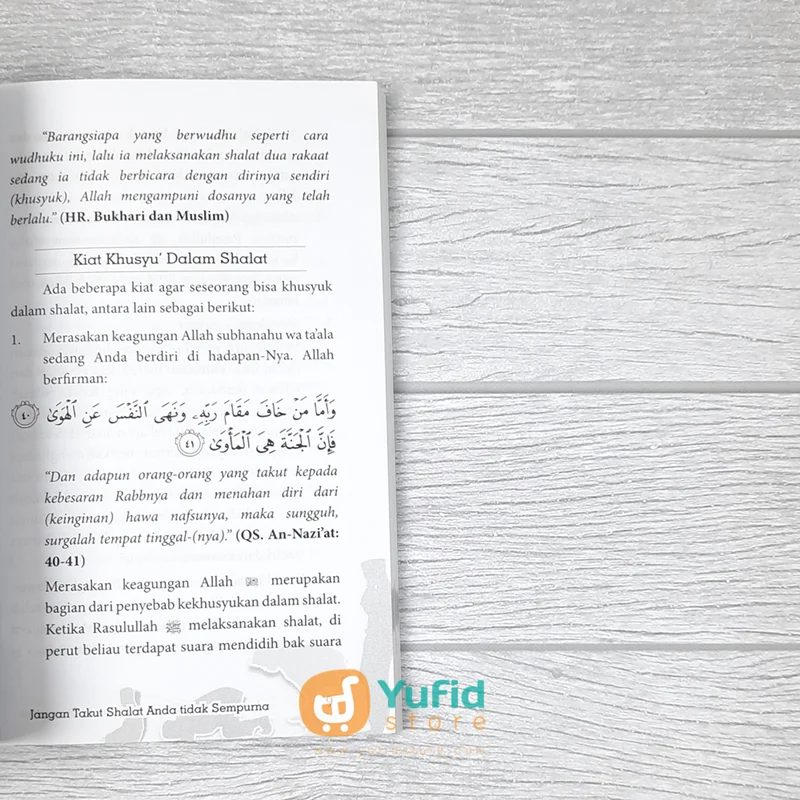 "Barangsiapa yang berwudhu seperti cara
wudhuku ini, lalu ia melaksanakan shalat dua rakaat
sedang ia tidak berbicara dengan dirinya sendiri
(khusyuk), Allah mengampuni dosanya yang telah
berlalu." (HR. Bukhari dan Muslim)
Kiat Khusyu' Dalam Shalat
Ada beberapa kiat agar seseorang bisa khusyuk
dalam shalat, antara lain sebagai berikut:
1. Merasakan keagungan Allah subhanahu wa ta'ala
sedang Anda berdiri di hadapan-Nya. Allah
berfirman:
وَأَمَّا مَنْ خَافَ مَقَامَ رَبِّهِۦ وَنَهَى ٱلنَّفْسَ عَنِ ٱلْهَوَىٰ ٤٠
فَإِنَّ ٱلْجَنَّةَ هِىَ ٱلْمَأْوَىٰ ٤١
"Dan adapun orang-orang yang takut kepada
kebesaran Rabbnya dan menahan diri dari
(keinginan) hawa nafsunya, maka sungguh,
surgalah tempat tinggal-(nya)." (QS. An-Nazi'at:
40-41)
Merasakan keagungan Allah merupakan
bagian dari penyebab kekhusyukan dalam shalat.
Ketika Rasulullah ﷺ melaksanakan shalat, di
perut beliau terdapat suara mendidih bak suara
Jangan Takut Shalat Anda tidak Sempurna
Yufid
store